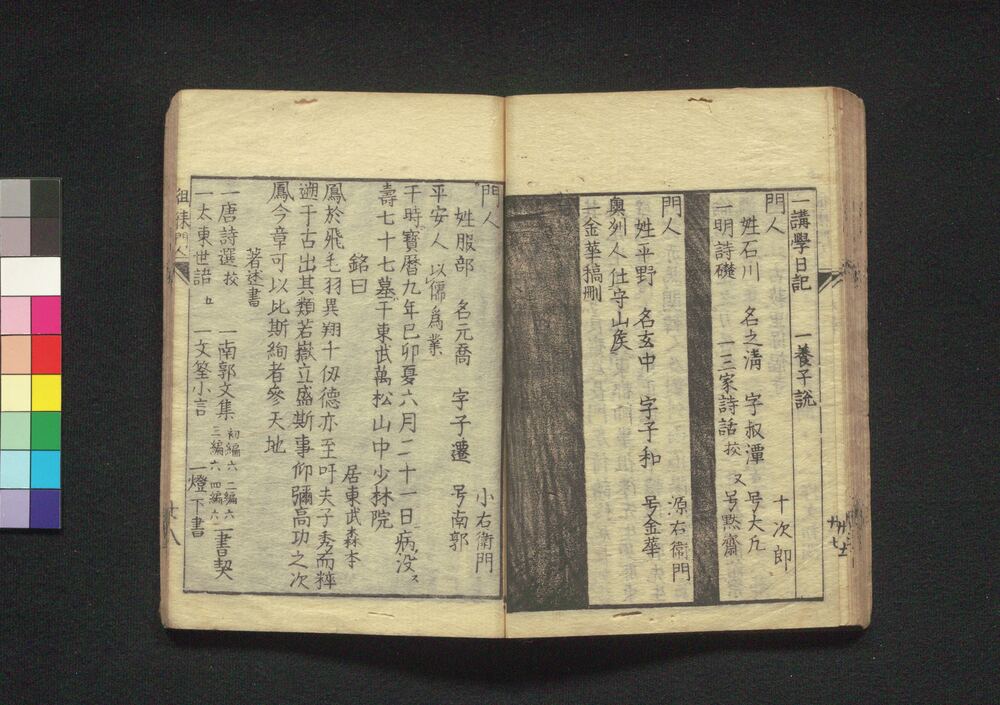 一講學日記 一養子説
門人 十次郎
姓石川 名之清 字叔潭 号大凡 又号黙齋
一明詩礎 一三家詩話 校
門人 源右衛門
姓平野 名玄中 字子和 号金華
奥列人仕守山矦
一金華稿刪
門人 小右衛門
姓服部 名元喬 字子遷 号南郭
平安人 以儒爲業
于時寳暦九年己卯夏六月二十一日病没ス
壽七十七墓于東武萬松山中少林院
銘曰 居東武森本
鳳於飛毛羽異翔千仭德亦至吁夫子秀而粹
遡于古出其類若嶽立盛斯事仰彌高功之次
鳳今章可以比斯絢者參天地
著述書
一唐詩選 校 一南郭文集 初編六 二編六 三編六 四編六 一書契
一太東世語 五 一文筌小言 一燈下書
徂徠門人
廿八